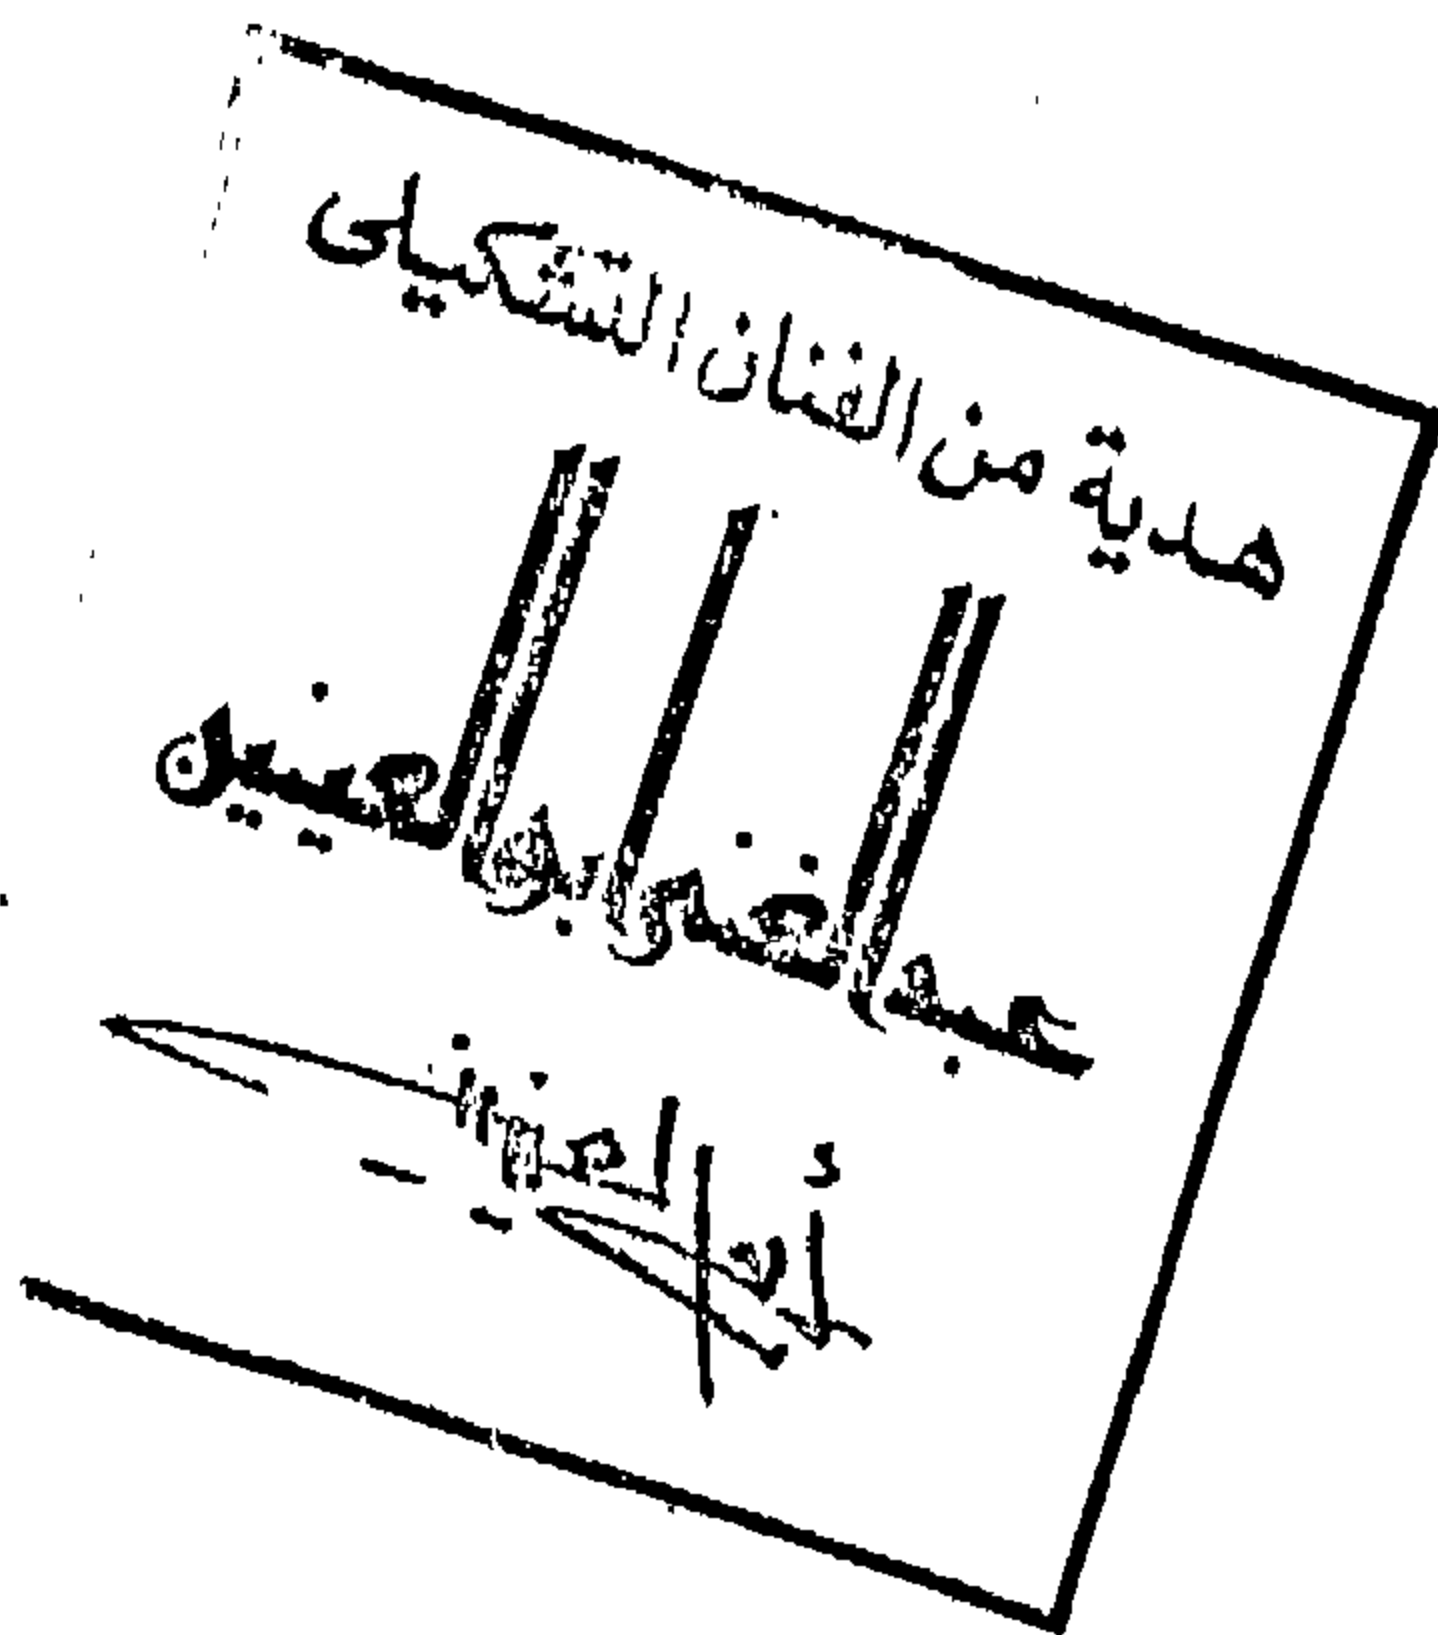 هدية من الفنان التشكيلى
عبد الغنى أبو العينين
أبو العينين